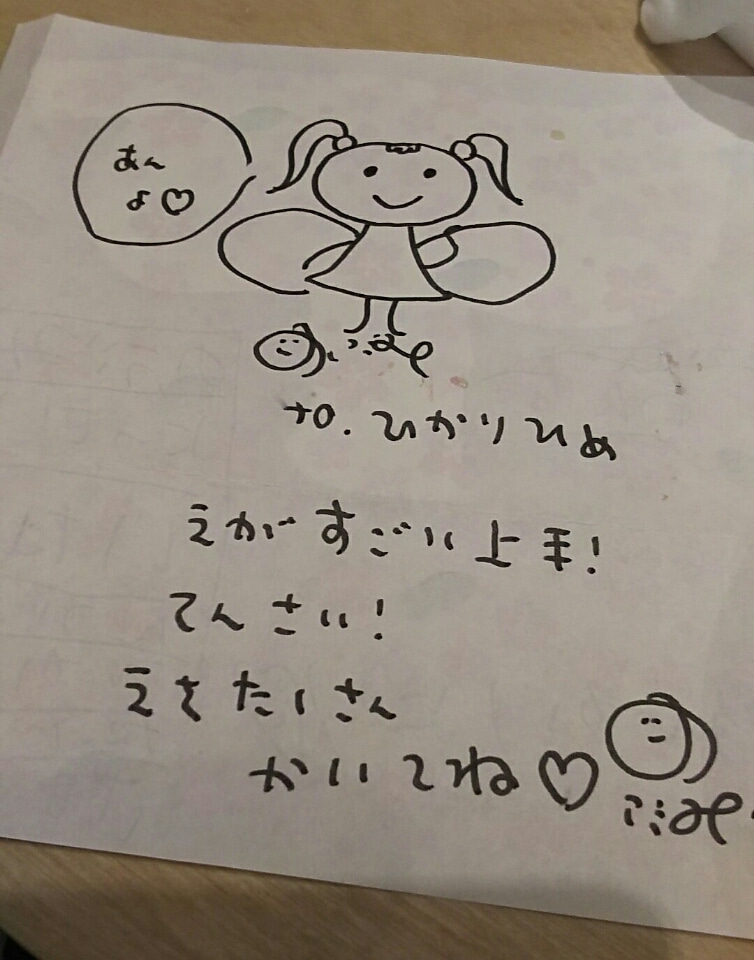 あん
よ♡
ひかりひめ
えがすごい上手!
てんさい!
えをたくさん
かいてね♡